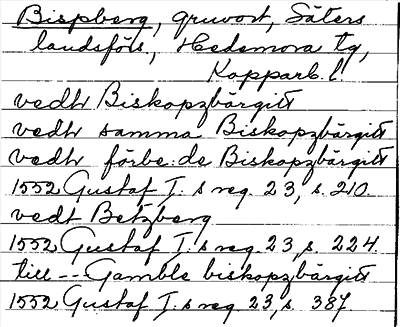 Bispberg, gruvort, Säters
landsförs, Hedemora tg,
Kopparb. l.
vedh Biskopzbärgitt
vedh samma Biskopzbärgitt
vedh förbe:de Biskopzbärgitt
1552 Gustaf I.s reg. 23, s. 210.
vedt Betzberg
1552 Gustaf I.s reg. 23, s. 224.
till -- Gamble biskopzbärgitt
1552 Gustaf I.s reg. 23, s. 387.